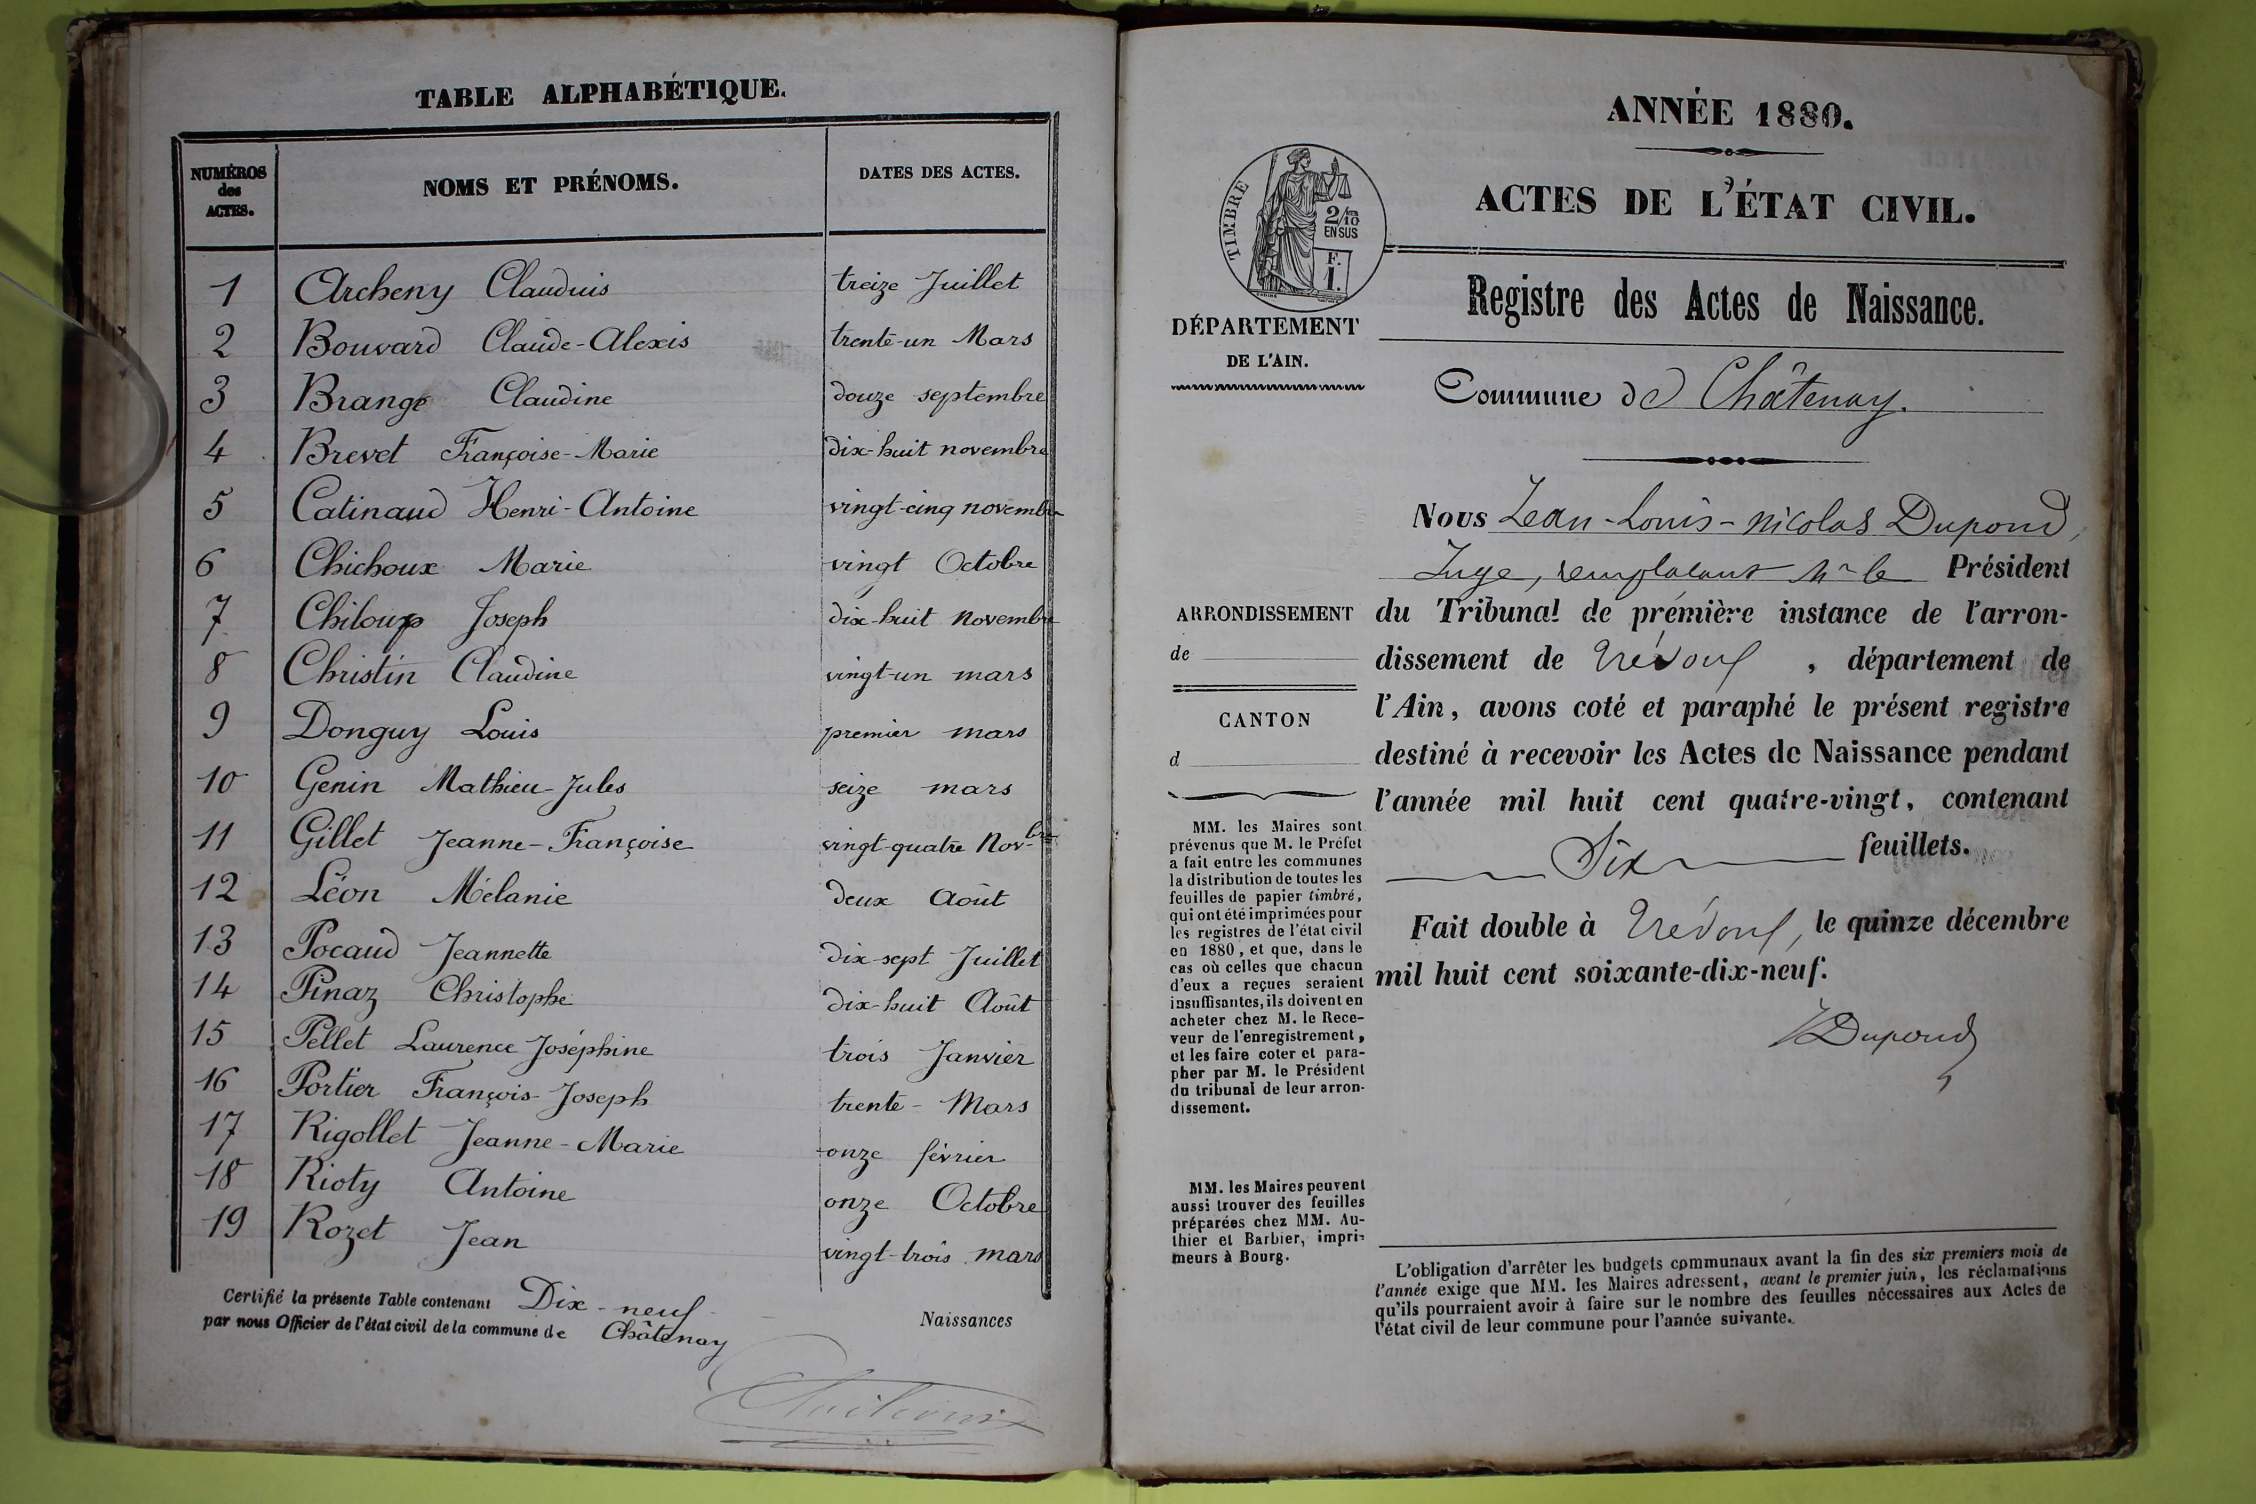 TABLE ALPHABÉTIQUE.
NUMÉROS
des
ACTES.
NOMS ET PRÉNOMS.
DATES DES ACTES.
1 Archeny Claudius treize Juillet
2 Bouvard Claude-Alexis trente-un Mars
3 Brange Claudine douze septembre
4 Brevet Françoise-Marie dix-huit novembre
5 Catinaud Henri-Antoine vingt-cinq novembre
6 Chichoux Marie vingt Octobre
7 Chiloup Joseph dix-huit Novembre
8 Christin Claudine vingt-un mars
9 Donguy Louis premier mars
10 Genin Mathieu-Jules seize mars
11 Gillet Jeanne-Françoise vingt-quatre Nov-bre
12 Léon Mélanie deux Août
13 Pocaud Jeannette dix-sept Juillet
14 Pinaz Christophe dix-huit Août
15 Pellet Laurence Joséphine trois Janvier
16 Portier François-Joseph trente-Mars
17 Rigollet Jeanne-Marie onze février
18 Rioty Antoine onze Octobre
19 Rozet Jean vingt-trois mars
Certifié la présente Table contenant Dix-neuf Naissances
par nous Officier de l'état civil de la commune de Châtenay
ANNÉE 1880.
ACTES DE L'ÉTAT CIVIL.
TIMBRE
2/10
EN SUS
F.
1.
Registre des Actes de Naissance.
DÉPARTEMENT
DE L'AIN.
Commune de Châtenay.
Nous Jean-Louis-Nicolas Dupond,
Juge, remplaçant Mr le Président
du Tribunal de prémière instance de l'arron-
dissement de Trévoux, département de
l'Ain, avons coté et paraphé le présent registre
destiné à recevoir les Actes de Naissance pendant
l'année mil huit cent quatre-vingt, contenant
Six feuillets.
Fait double à Trévoux, le quinze décembre
mil huit cent soixante-dix-neuf.
JDupond
ARRONDISSEMENT
de
CANTON
d
MM. les Maires sont
prévenus que M. le Préfet
a fait entre les communes
la distribution de toutes les
feuilles de papier timbré,
qui ont été imprimées pour
les registres de l'état civil
en 1880, et que, dans le
cas où celles que chacun
d'eux a reçues seraient
insuffisantes, ils doivent en
acheter chez M. le Rece-
veur de l'enregistrement,
et les faire coter et para-
pher par M. le Président
du tribunal de leur arron-
dissement.
MM. les Maires peuvent
aussi trouver des feuilles
préparées chez MM. Au-
thier et Barbier, impri-
meurs à Bourg.
L'obligation d'arrêter les budgets communaux avant la fin des six premiers mois de
l'année exige que MM. les Maires adressent, avant le premier juin, les réclamations
qu'ils pourraient avoir à faire sur le nombre des feuilles nécessaires aux Actes de
l'état civil de leur commune pour l'année suivante.